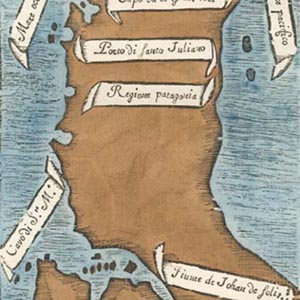 Mare oc
Capo de
pacifico
Porto di santo Juliano
Regione patagonia
Cavo di S.ta M.a
Fiume de Johan de solis